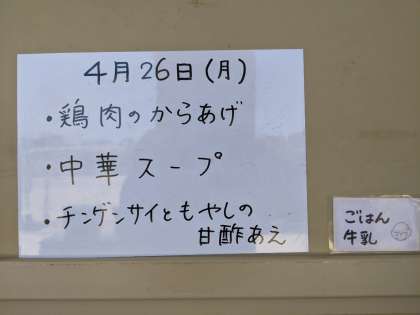 4月26日(月)
・鶏肉のからあげ
・中華スープ
・チンゲンサイともやしの
甘酢あえ
ごはん
牛乳